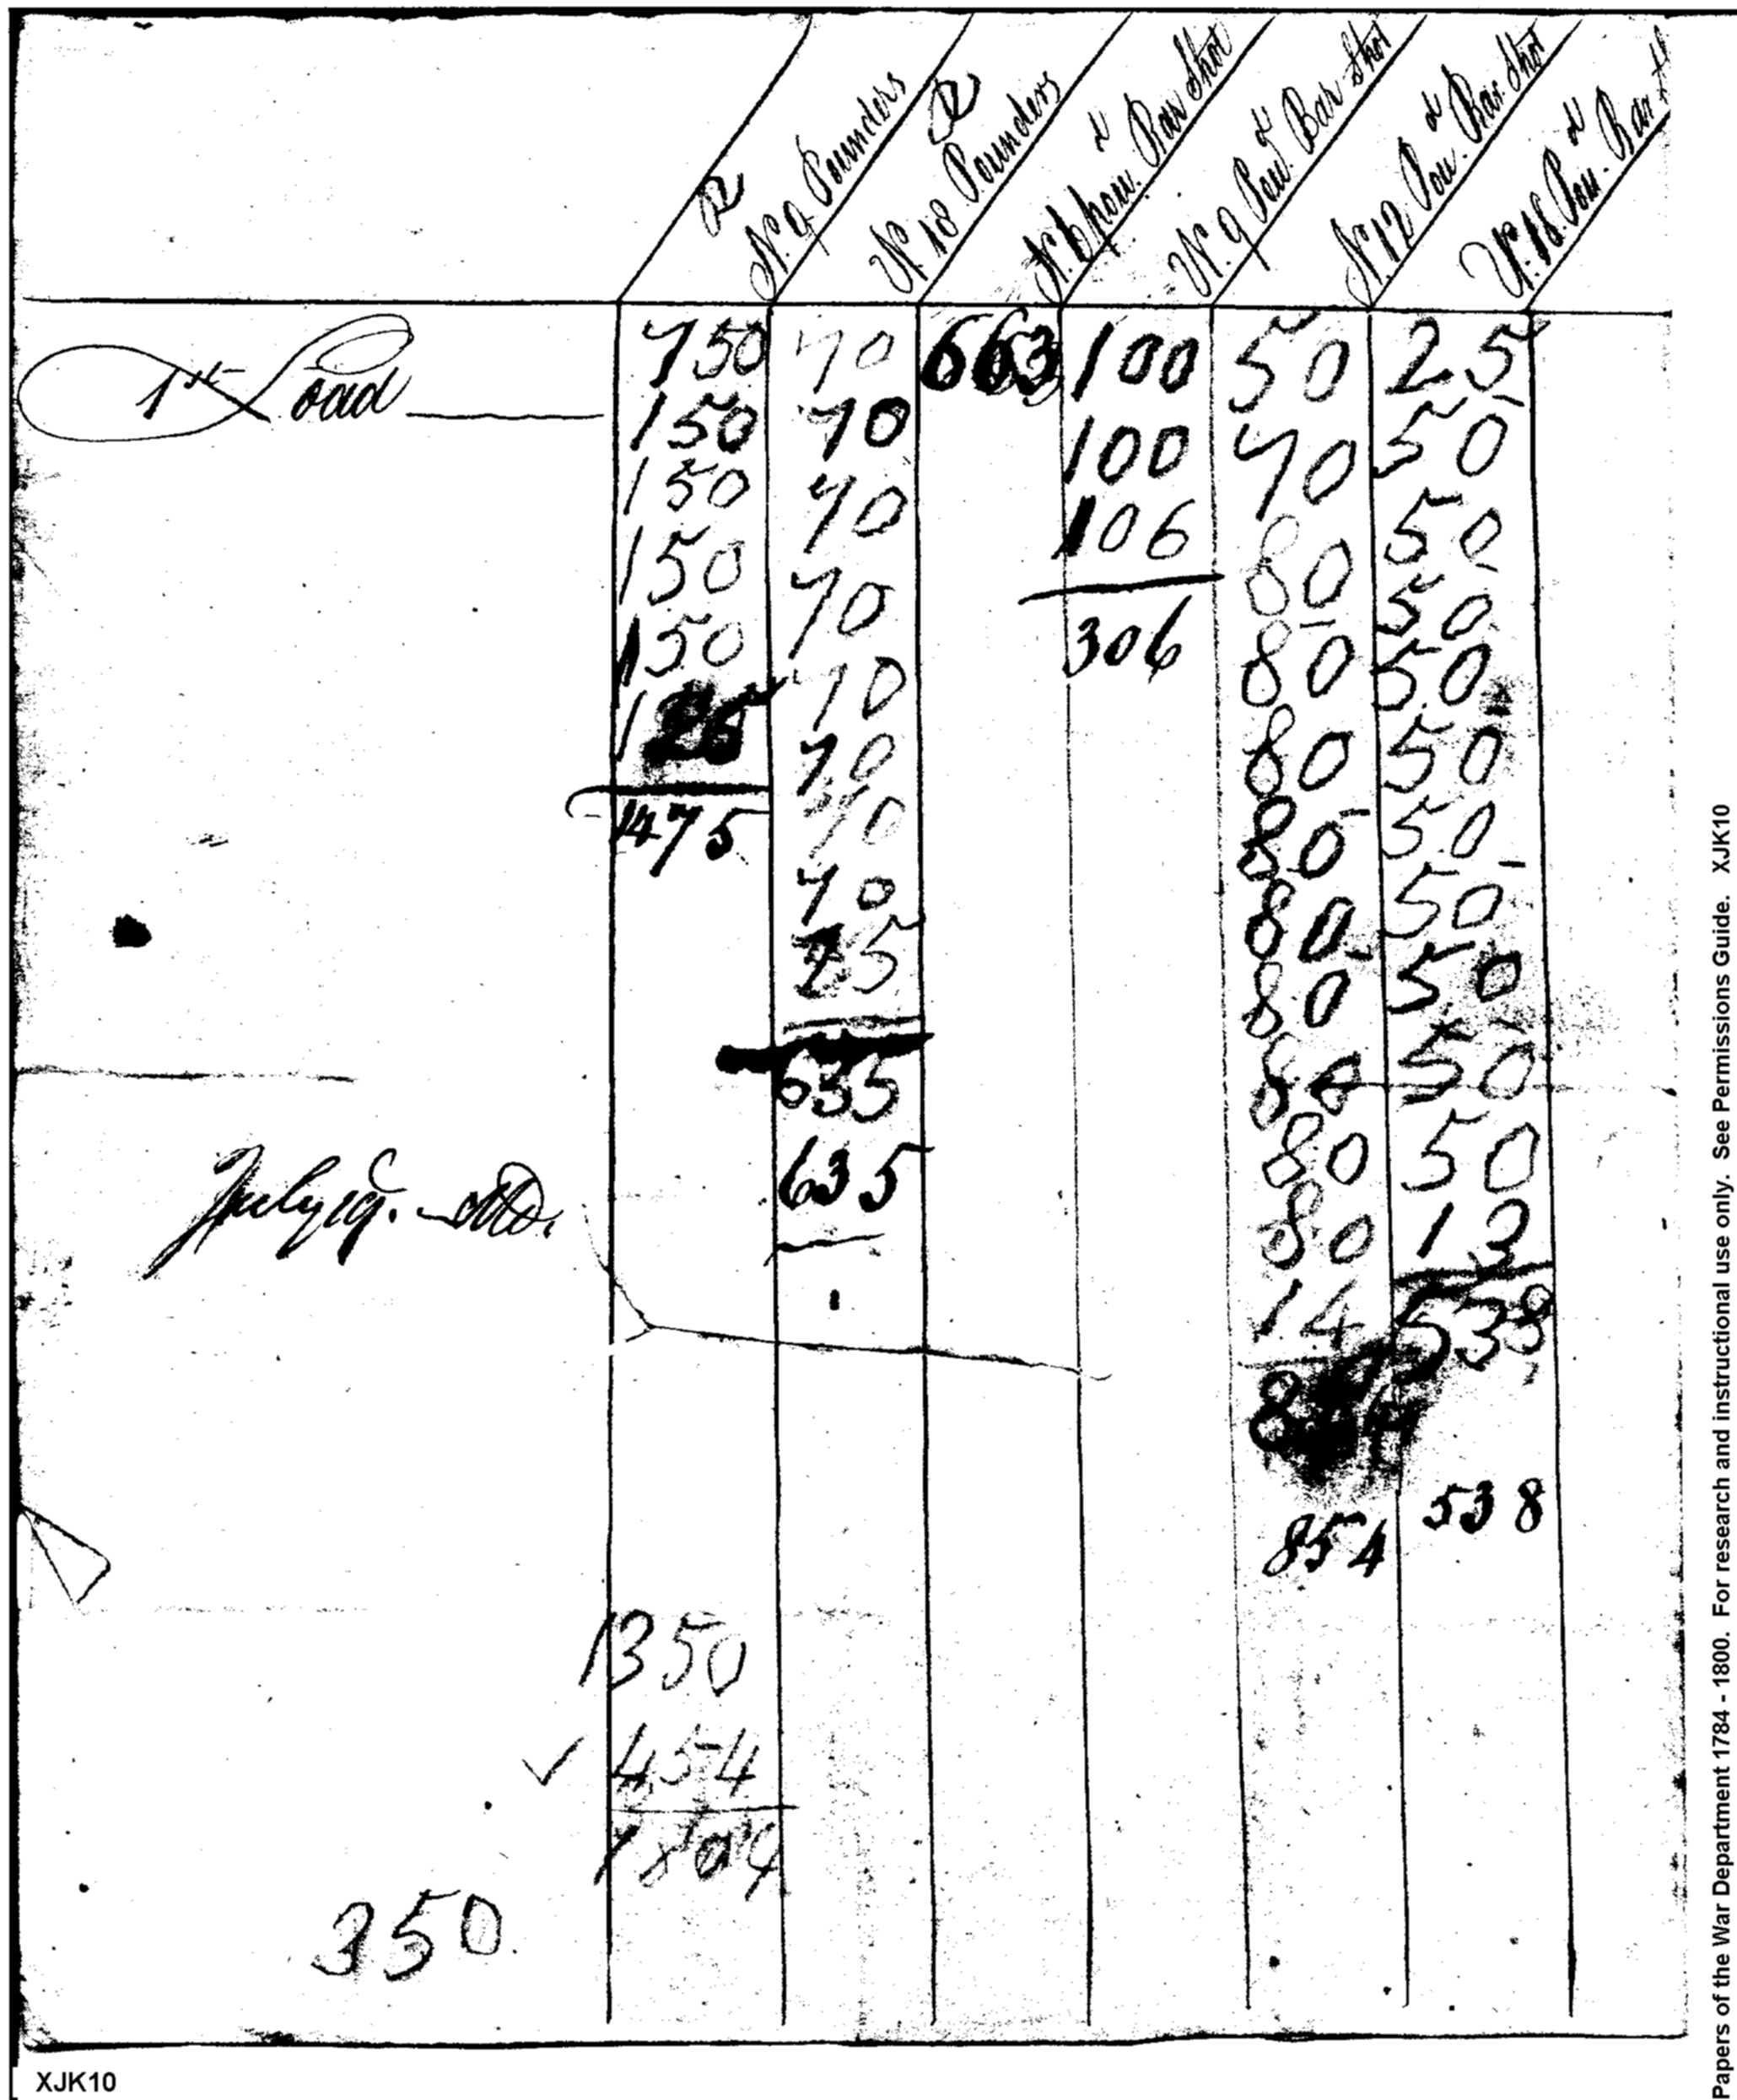 R N. 9 Pounders
R N. 18 Pounders
N. 6 pou.d Bar Shot
N. 9 Pou.d Bar Shot
N. 12 Pou.d Bar Shot
N. 18 Pou.d Bar
1st Load 750 70 663 100 50 25
150 70 100 70 50
150 70 106 80 50
150 70 306 80 50
150 70 80 50
125 70 80 50
1475 70 80 50
70 80 50
75 80 50
635 80 50
July 19. 635 80 50
80 13
14 538
854
854 538
1350
454
1804
350
Papers of the War Department 1784 - 1800. For research and instructional use only. See Permissions Guide. XJK10
XJK10